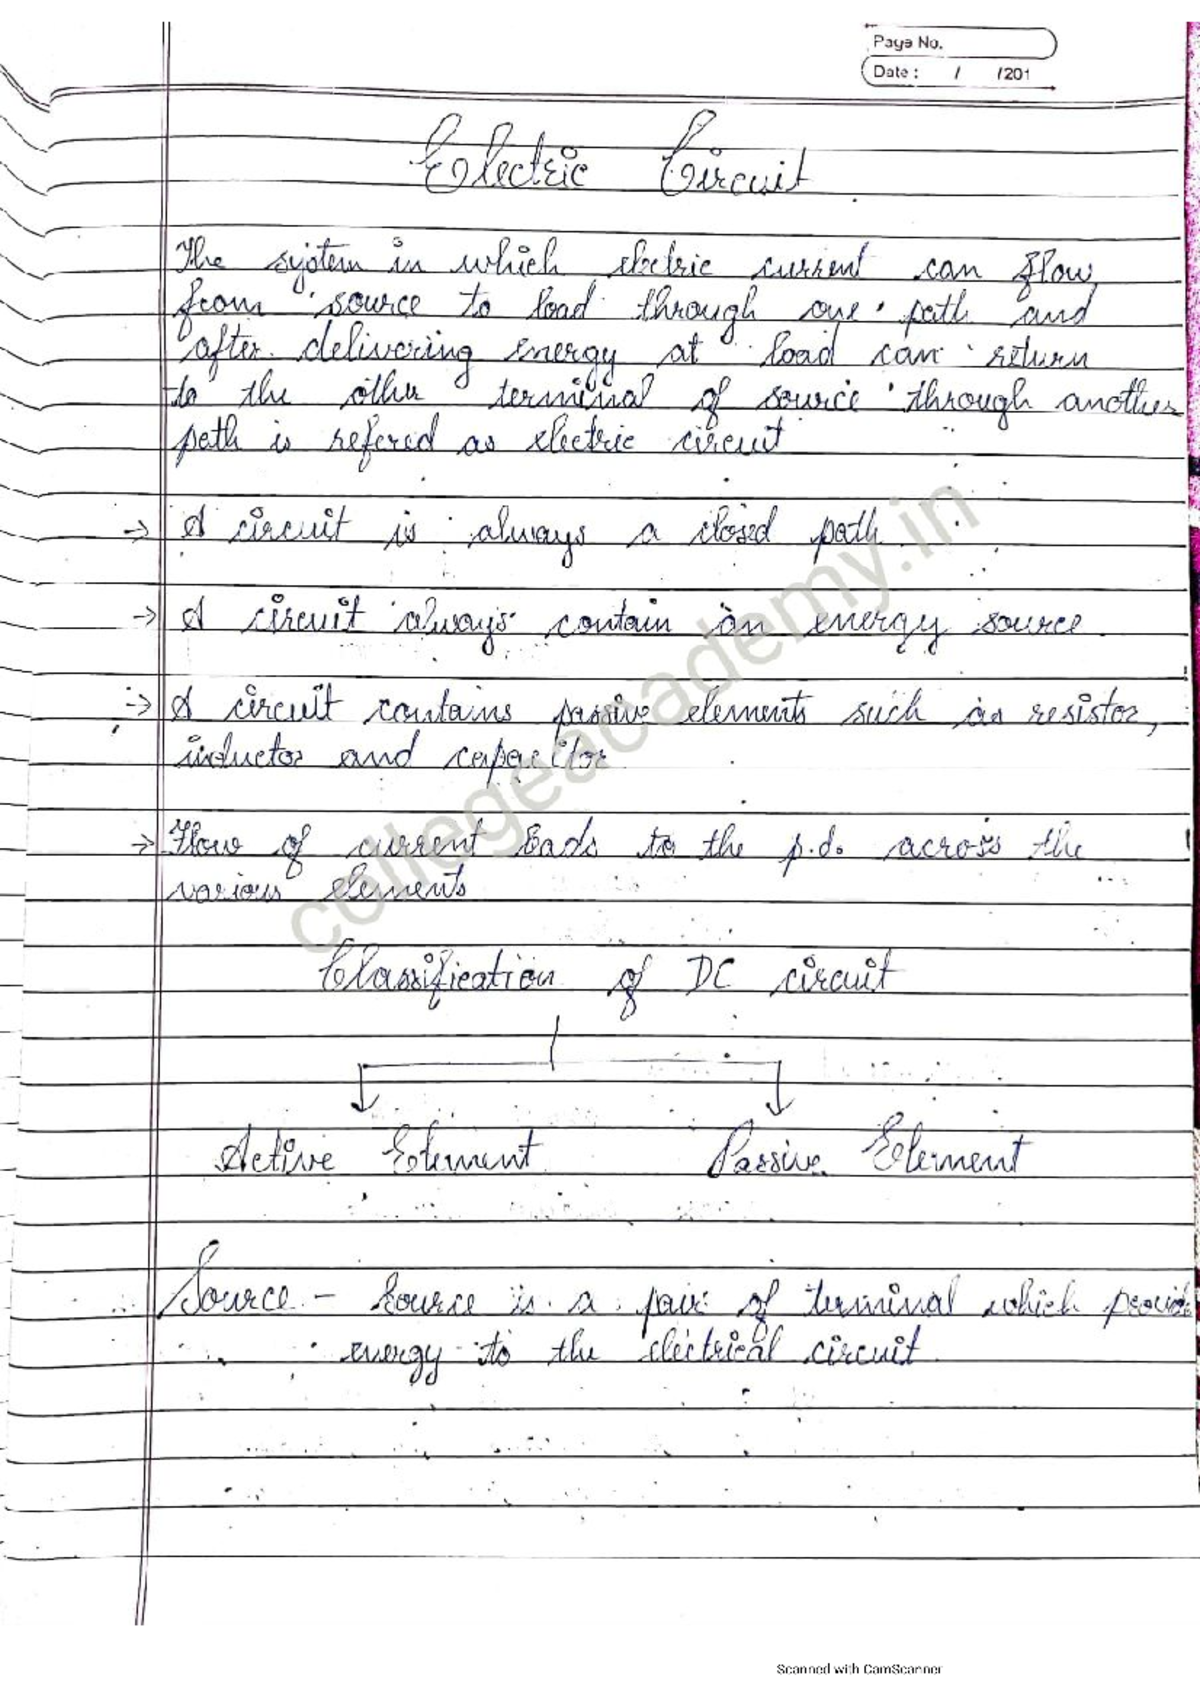 Page No.
Date : / /201
Electric Circuit
The system in which electric current can flow
from source to load through one path and
after delivering energy at load can return
to the other terminal of source through another
path is refered as electric circuit
→ A circuit is always a closed path
→ A circuit always contain an energy source
→ A circuit contains passive elements such as resistor,
inductor and capacitor
→ Flow of current leads to the p.d. across the
various elements
Classification of DC circuit
Active Element Passive Element
Source - Source is a pair of terminal which provide
energy to the electrical circuit
collegeacademy.in
Scanned with CamScanner